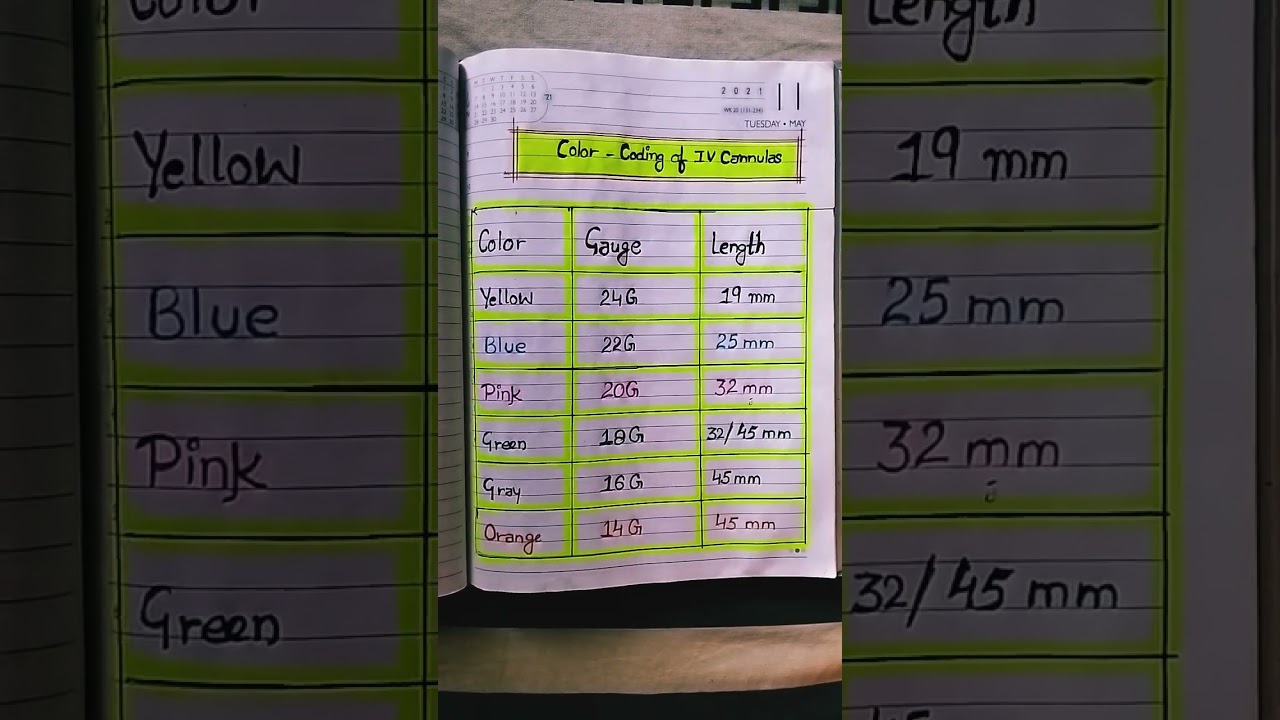 2021 11
WK 20 (131-234)
TUESDAY • MAY
'21
Color - Coding of IV Cannulas
Color Gauge Length
Yellow 24G 19 mm
Blue 22G 25 mm
Pink 20G 32 mm
Green 18G 32/45 mm
Gray 16G 45 mm
Orange 14G 45 mm
Color
Yellow
Blue
Pink
Green
Length
19 mm
25 mm
32 mm
32/45 mm